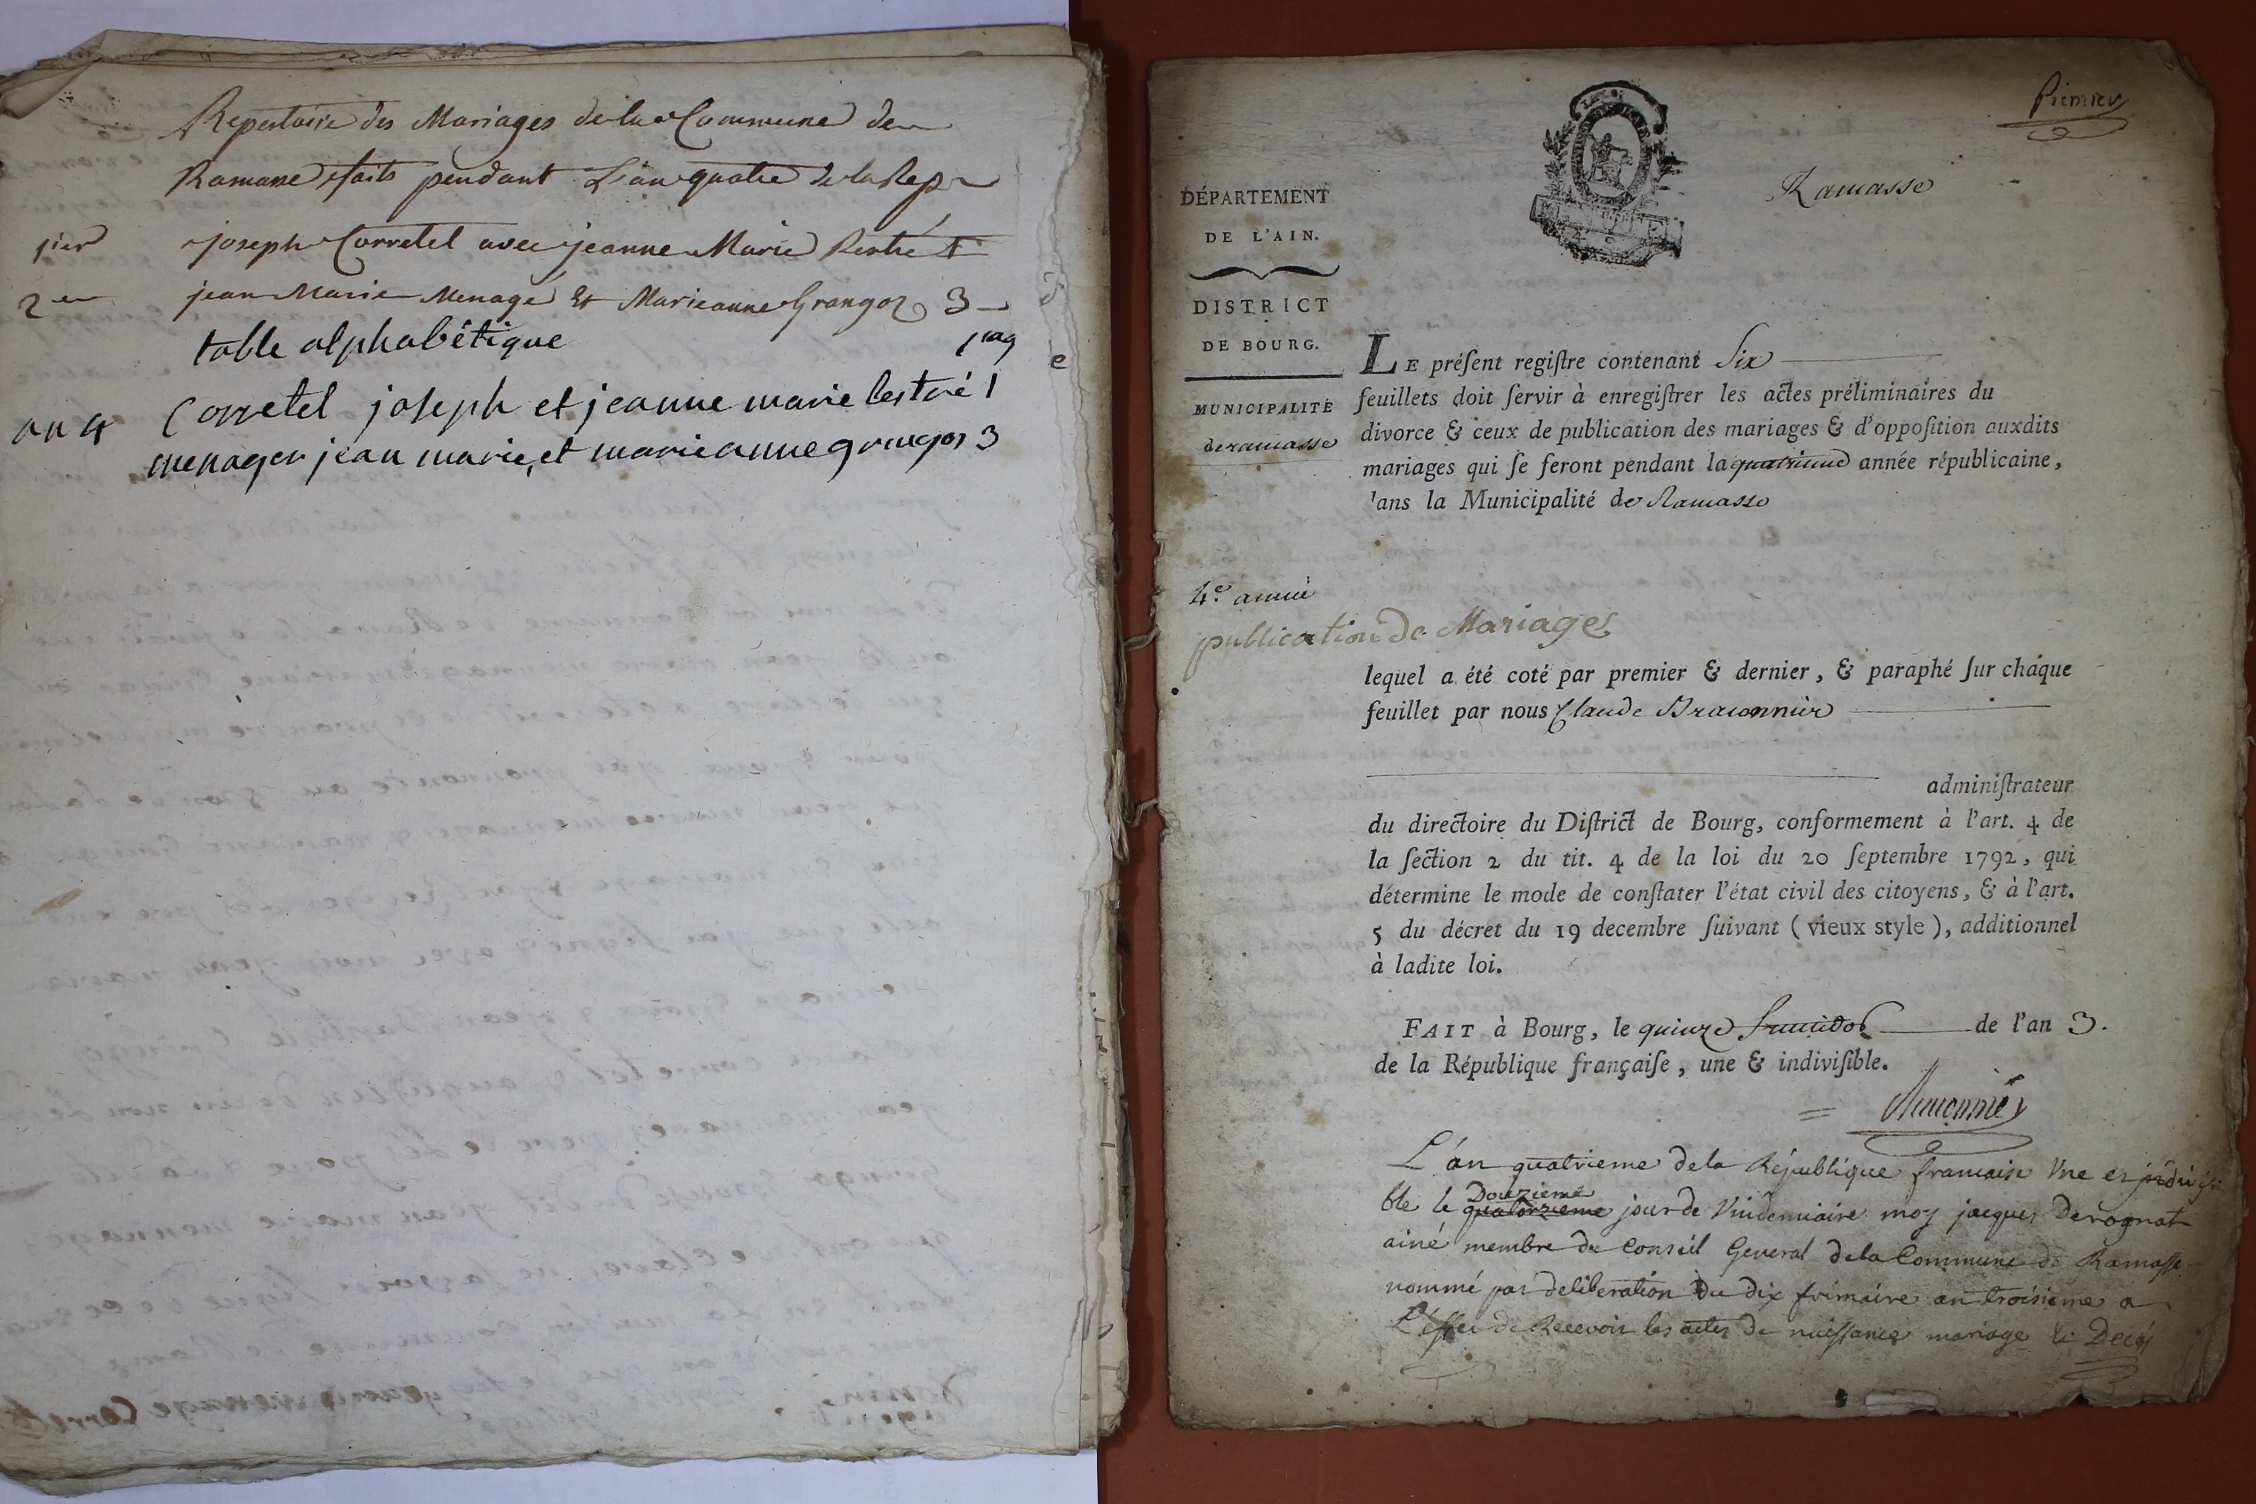 Repertoire des Mariages de la Commune de
Ramasse faits pendant L'an quatre de la Rep
1ier joseph Corretel avec jeanne Marie Lestré 1
2e jean Marie Menagé Et Marieanne Grangos 3
table alphabétique pag
an 4 Corretel joseph et jeanne marie lestré 1
menager jean marie, et marieanne grangos 3
Premier
Ramasse
DÉPARTEMENT
DE L'AIN.
DISTRICT
DE BOURG.
MUNICIPALITÉ
de ramasse
LE préſent regiſtre contenant Six
feuillets doit ſervir à enregiſtrer les actes préliminaires du
divorce & ceux de publication des mariages & d'oppoſition auxdits
mariages qui ſe feront pendant la quatrieme année républicaine,
dans la Municipalité de Ramasse
4e. année
publication de Mariages
lequel a été coté par premier & dernier, & paraphé ſur chaque
feuillet par nous Claude Braconnier
adminiſtrateur
du directoire du Diſtrict de Bourg, conformement à l'art. 4 de
la ſection 2 du tit. 4 de la loi du 20 ſeptembre 1792, qui
détermine le mode de conſtater l'état civil des citoyens, & à l'art.
5 du décret du 19 decembre ſuivant (vieux style), additionnel
à ladite loi.
FAIT à Bourg, le quinze fructidor de l'an 3.
de la République françaiſe, une & indiviſible.
Braconnier
L'an quatrieme de la République francaise Une et jndivisi
ble le Douzieme quatorzieme jour de Vindemiaire moy jacques Derognat
ainé membre du Conseil General de la Commune de Ramasse
nommé par deliberation du dix frimaire an troisieme a
L'effet de Recevoir les actes de naissance mariage & Decés